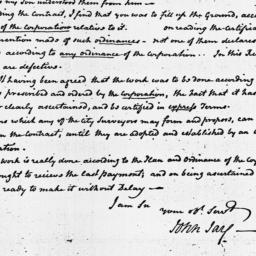 my Son understood them from him —
ing the Contract, I find that you was to fill up the Ground, accor
of the Corporation relative to it. on reading the Certifica
mention made of such ordinances. not one of them declares
according to any ordinance of the Corporation. In this Re
are defective.
ll having been agreed that the work was to be done according
prescribed and ordered by the Corporation, the Fact that it has
clearly ascertained, and so certified in express Terms.
ns which any of the City Surveyors may form and propose, can
the Contract, until they are adopted and established by an
ation.
work is really done according to the Plan and Ordinance of the Co
ought to recieve the last payment; and on being ascertained
ready to make it without Delay —
I am Sir
your ob. Servt.
John Jay.